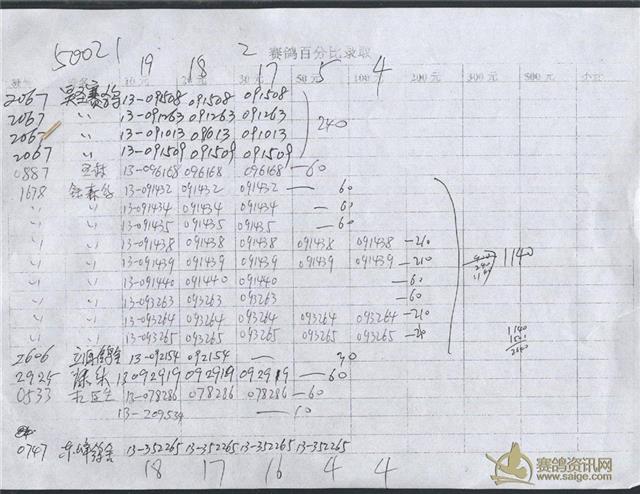 50021 2 赛鸽百分比录取
19 18 17 5 4
10元 20元 30元 50元 100元 200元 300元 500元 小计
2067 13-091508 091508 091508
2067 〃 13-091263 091263 091263
2067 〃 13-091013 09013 091013 240
2067 〃 13-091509 091509 091509
0887 13-096168 096168 096168 —60
1678 13-091432 091432 091432 — 60
〃 〃 13-091434 091434 091434 — 60
〃 〃 13-091435 091435 091435 — 60
〃 〃 13-091438 091438 091438 091438 091438 —210
〃 〃 13-091439 091439 091439 091439 091439 —210 1140
〃 〃 13-091440 091440 091440 —60
〃 〃 13-093263 093263 093263 —60
〃 〃 13-093264 093264 093264 093264 093264 —210
〃 〃 13-093265 093265 093265 093265 093265 1140
2606 13-092154 092154 —
2925 13-092919 092919 092919 —60
0533 13-078286 078286 078286 —60
13-209534 —10
0747 13-352265 13-352265 13-352265 13-352265
18 17 16 4 4
赛鸽资讯网
www.saige.com